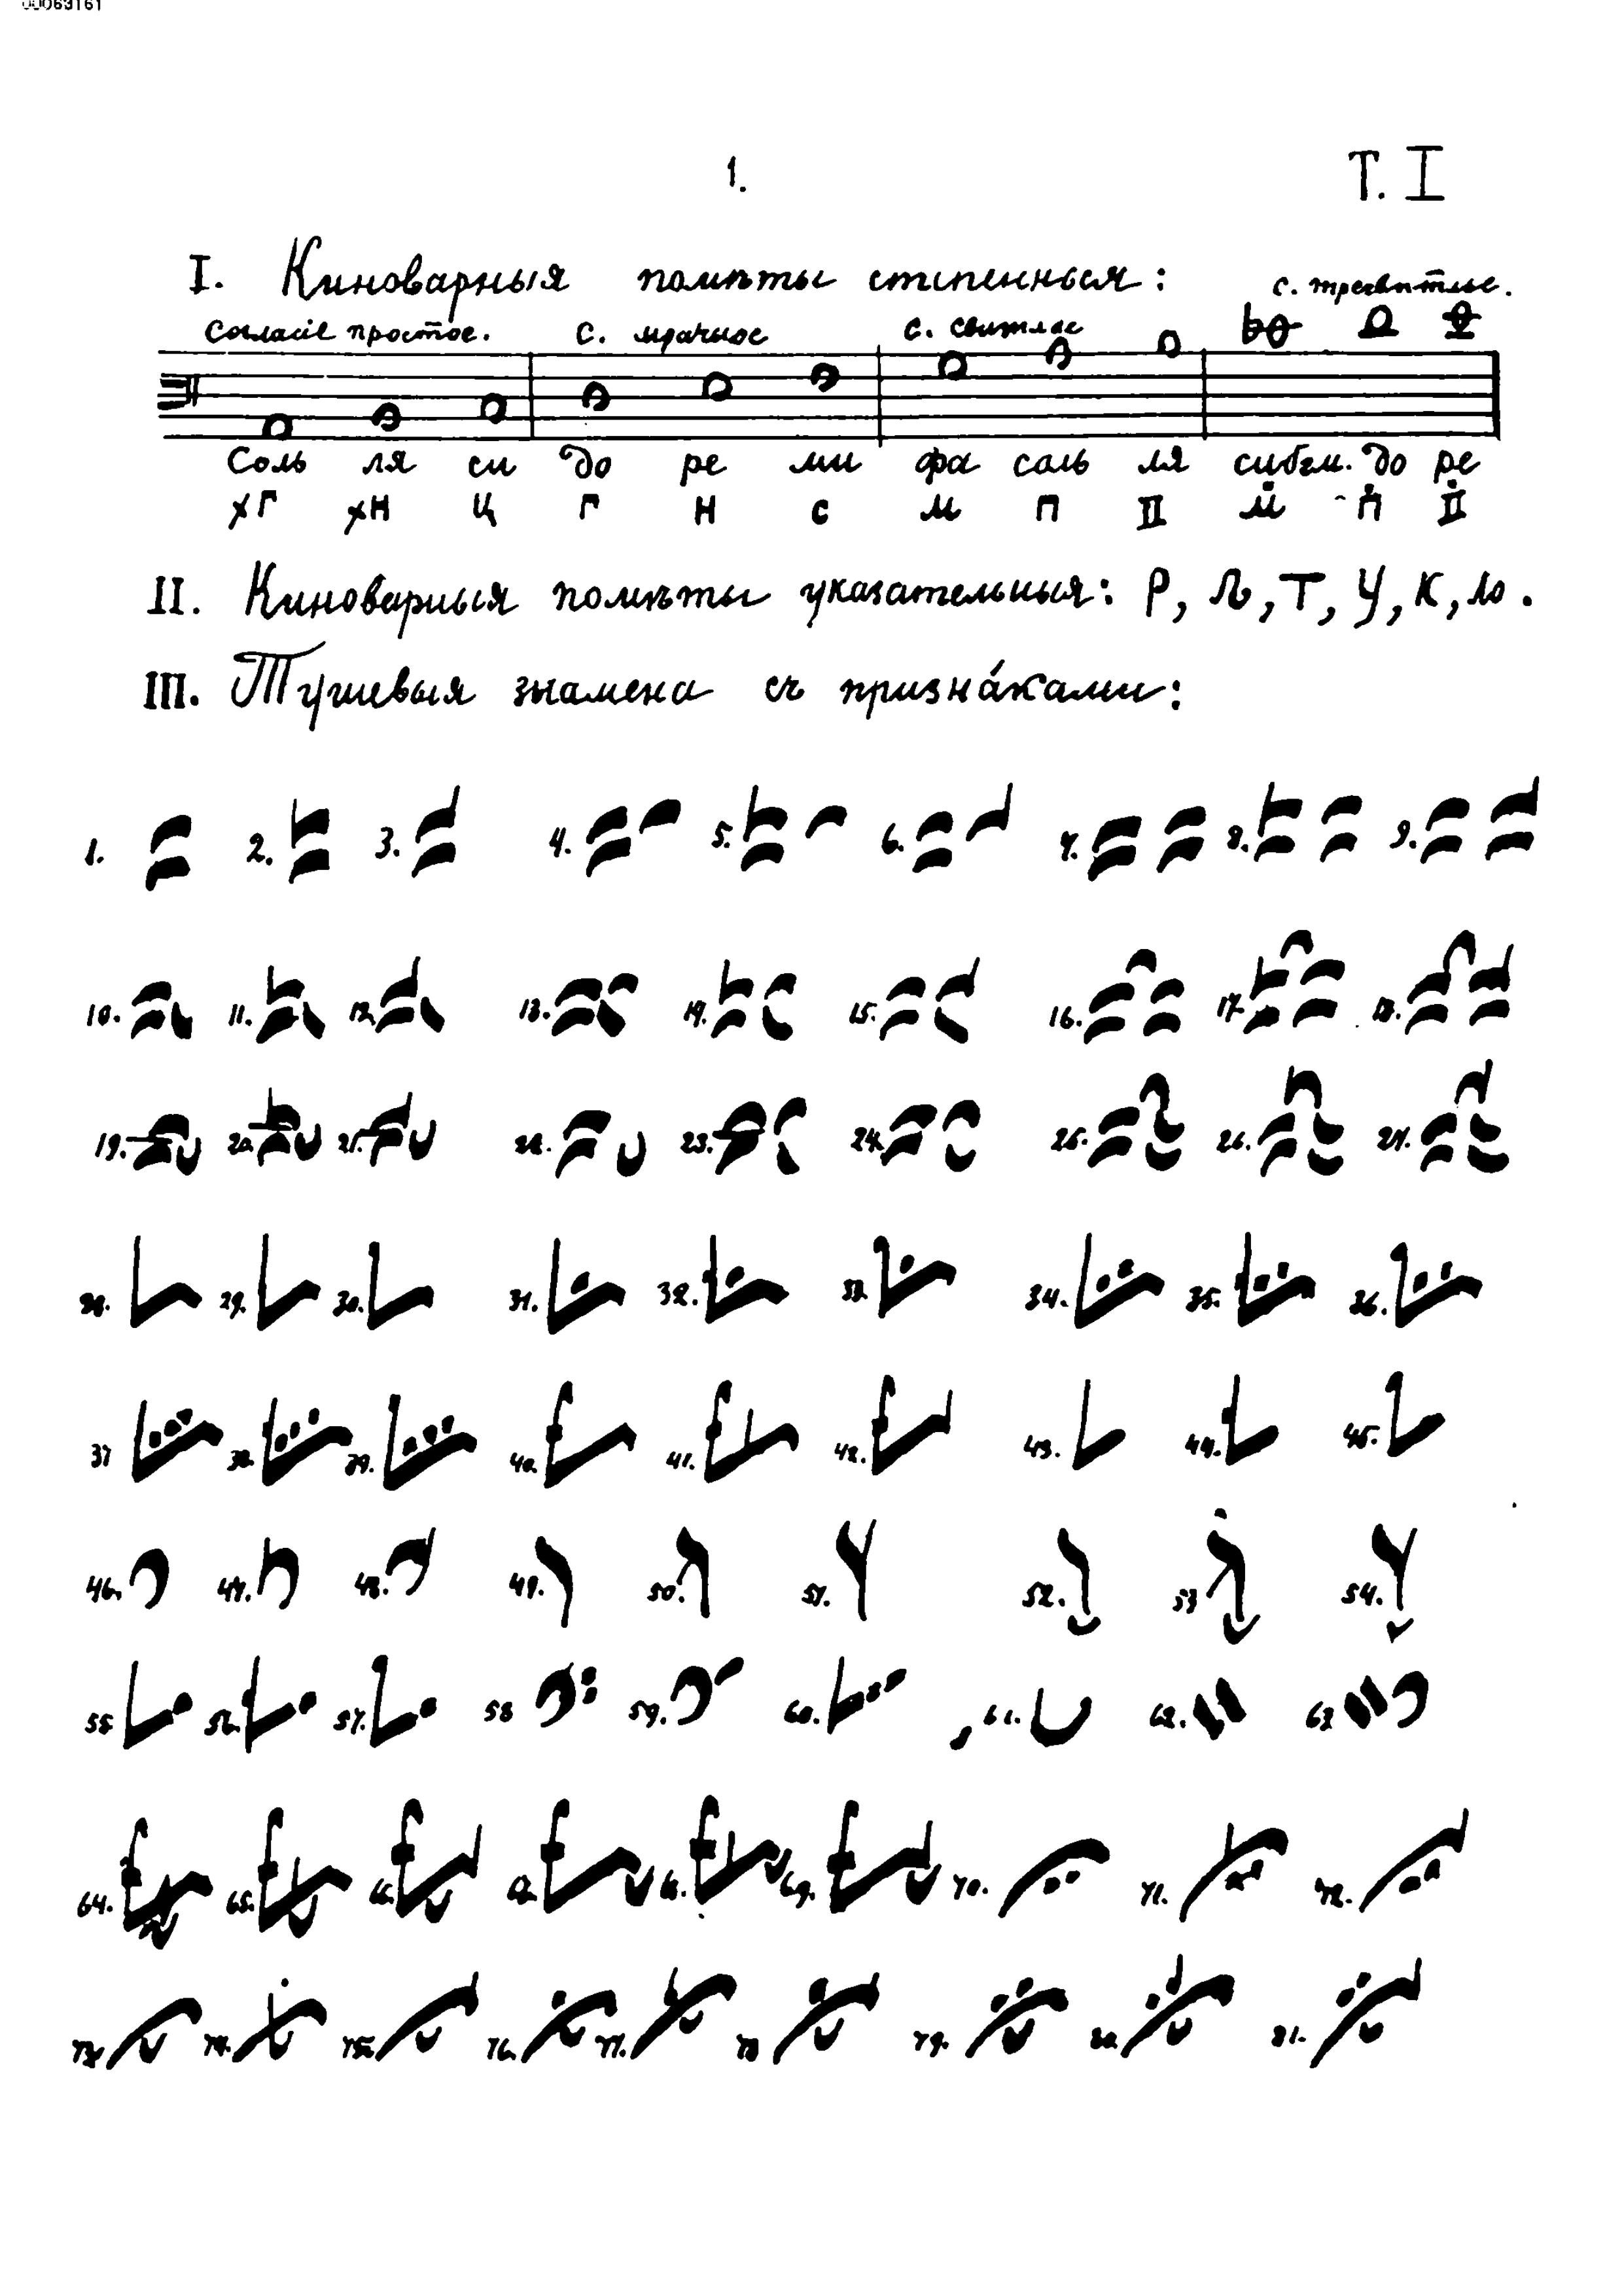 00063161
1. Т. I
I. Киноварныя помѣты степенныя:
Согласіе простое. с. мрачное с. свѣтлое с. тресвѣтлое.
Соль ля си до ре ми фа соль ля си бем. до ре
хГ хН Ц Г Н с м П
II. Киноварныя помѣты указательныя: Р, Т, У, К, ю.
III. Тушевыя знамена съ призна́ками:
1. 2. 3. 4. 5. 6. 7. 8. 9.
10. 11. 12. 13. 14. 15. 16. 17. 18.
19. 20. 21. 22. 23. 24. 25. 26. 27.
28. 29. 30. 31. 32. 33. 34. 35. 36.
37 38. 39. 40. 41. 42. 43. 44. 45.
46. 47. 48. 49. 50. 51. 52. 53 54.
55. 56. 57. 58 59. 60. 61. 62. 63
64. 65. 66. 67. 68. 69. 70. 71. 72.
73. 74. 75. 76. 77. 78 79. 80. 81.